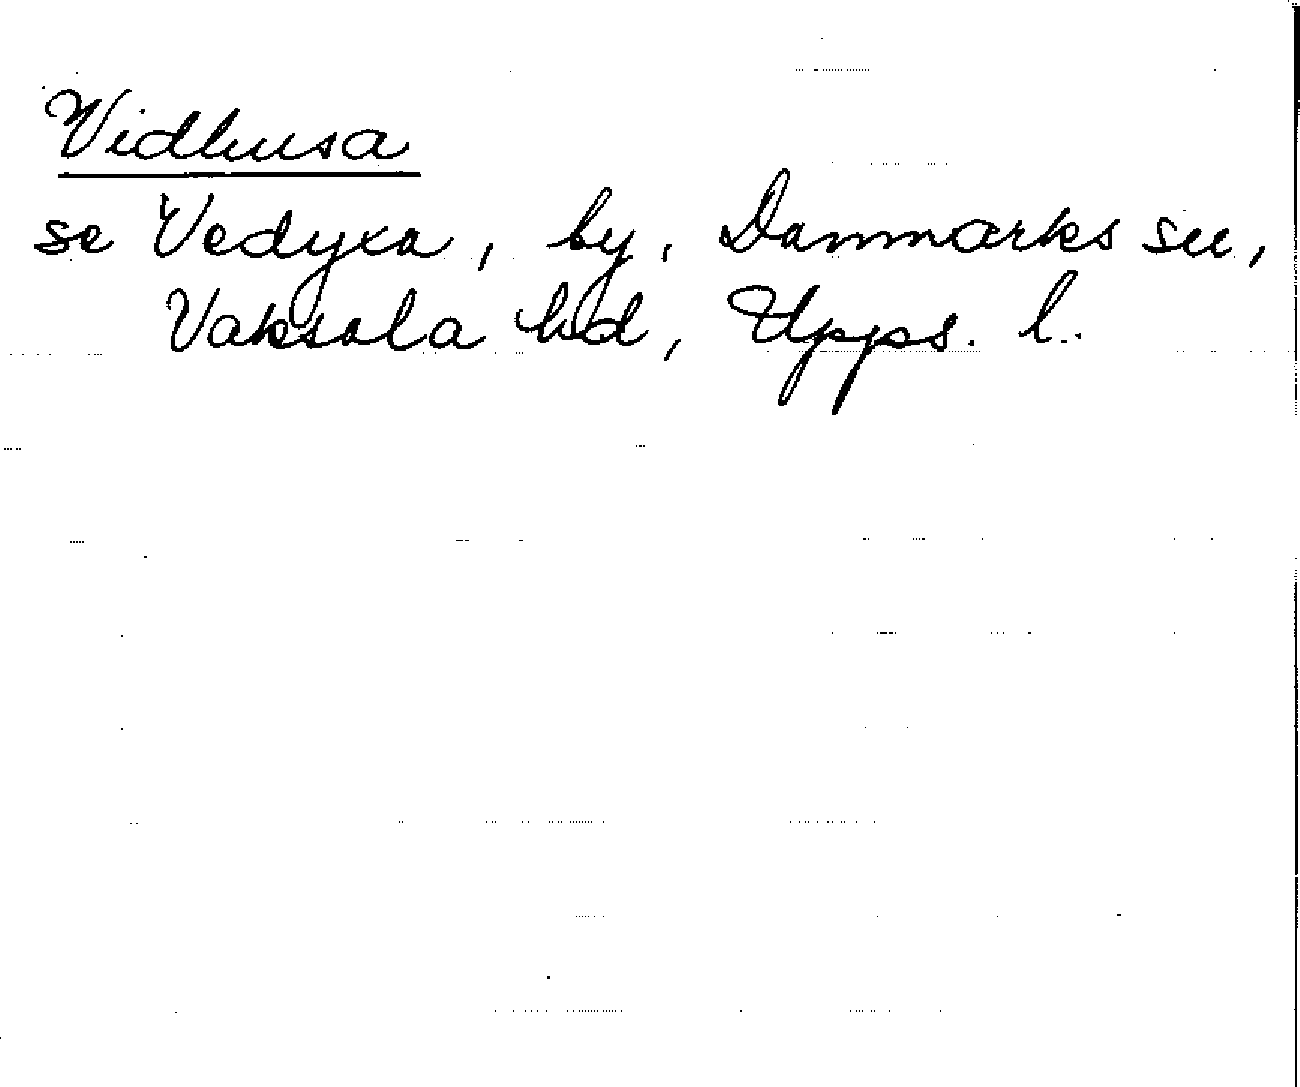 Vidhusa
se Vedyxa, by, Danmarks sn,
Vaksala hd, Upps. l.